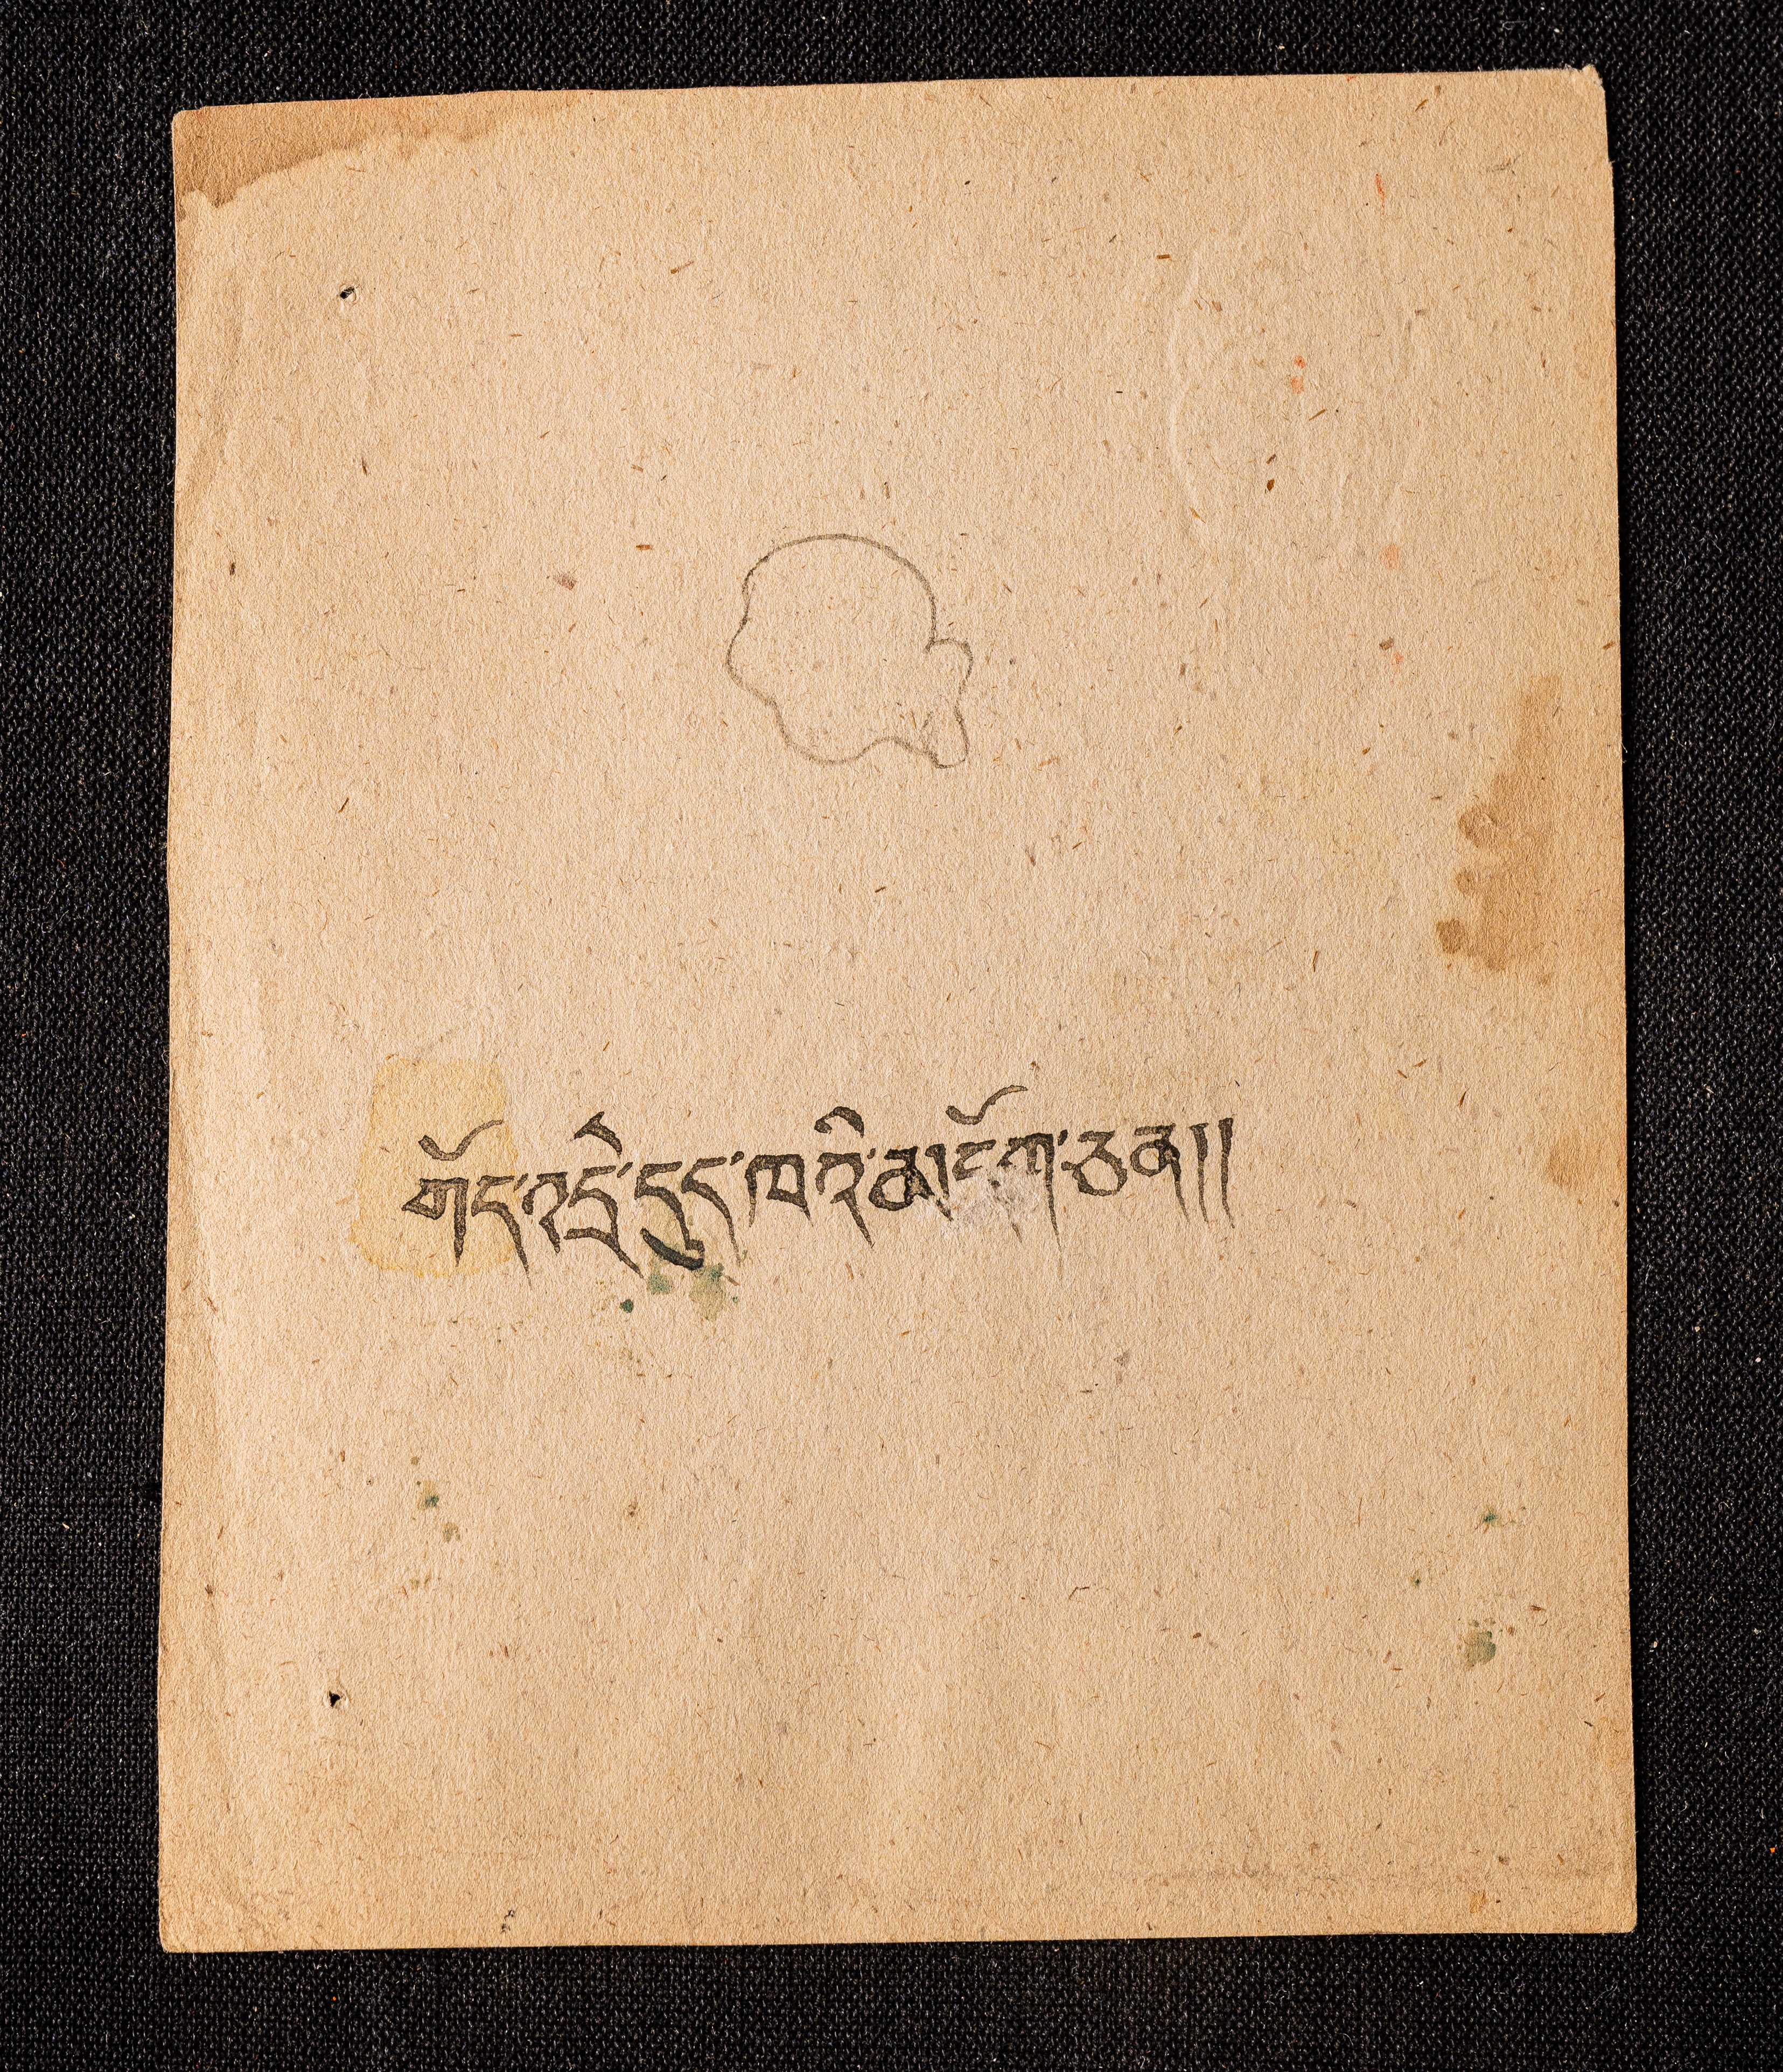 གོད་འདྲེ་དུད་ཁའི་མདོག་ཅན།།